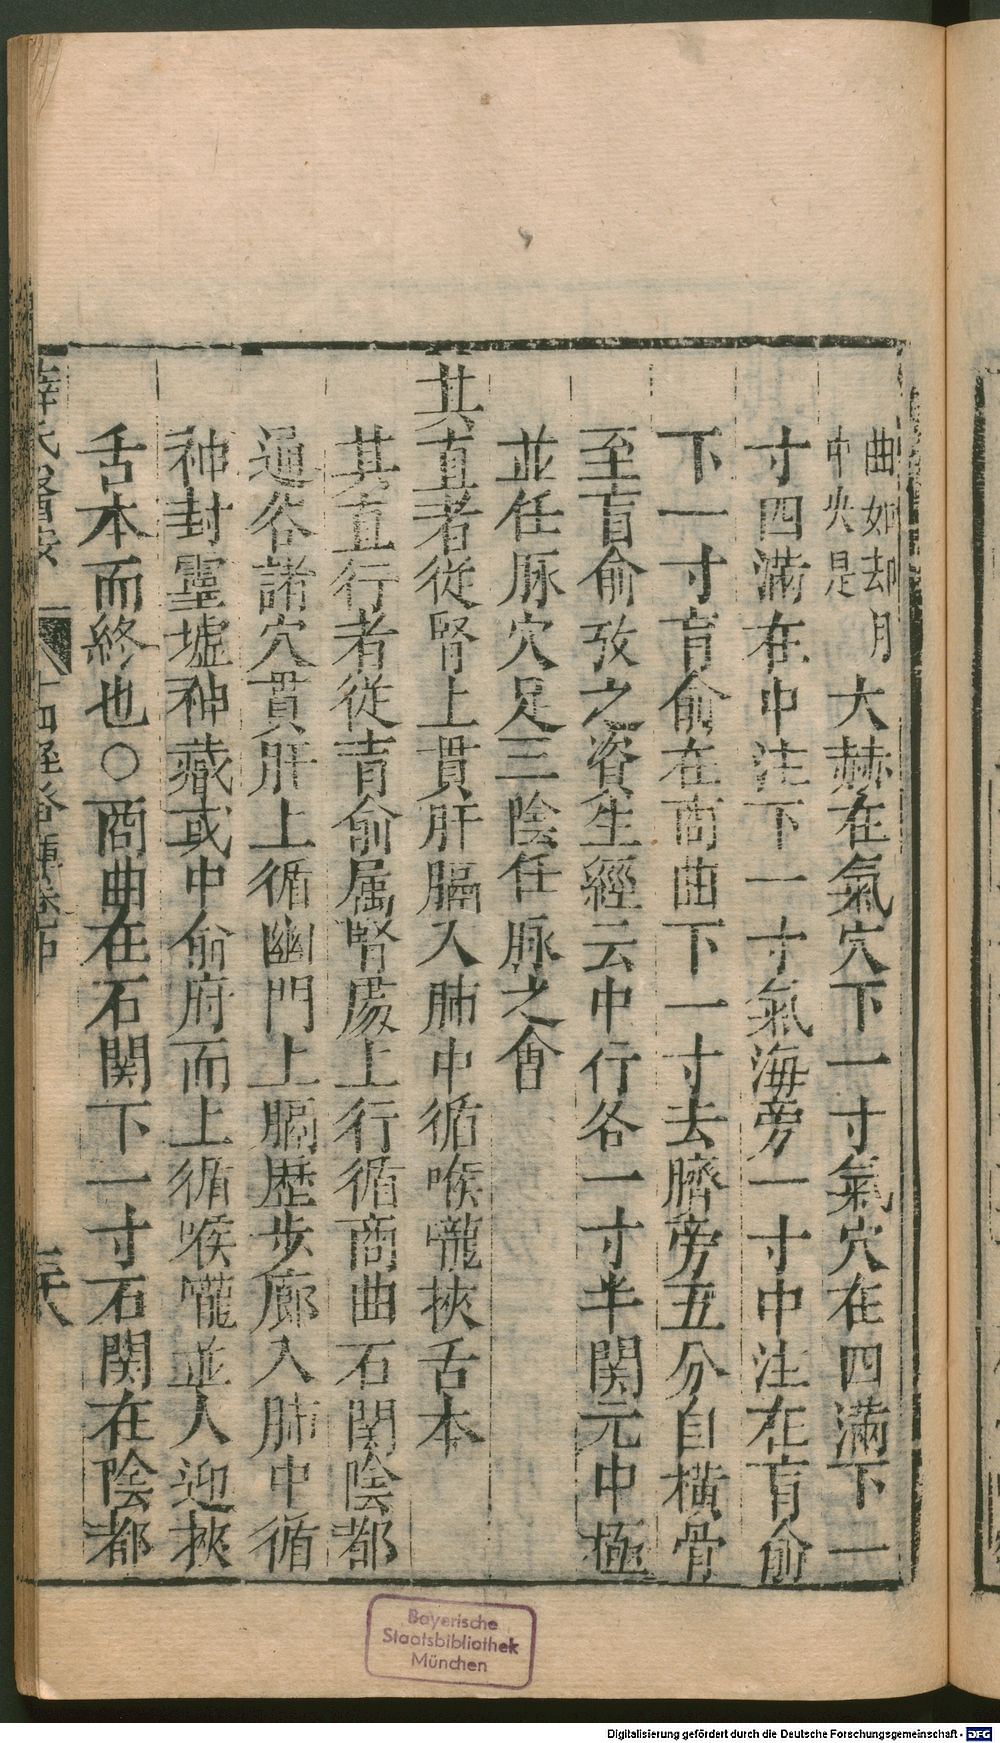 曲如却月中央是大赫在氣穴下一寸氣穴在四滿下一
寸四滿在中注下一寸氣海旁一寸中注在肓俞
下一寸肓俞在商曲下一寸去臍旁五分自橫骨
至肓俞攷之資生經云中行各一寸半関元中極
並任脉穴足三陰任脉之會
其直者從腎上貫肝膈入肺中循喉嚨挾舌本
其直行者從肓俞属腎處上行循商曲石関陰都
通谷諸穴貫肝上循幽門上膈歷步廊入肺中循
神封靈墟神藏或中俞府而上循喉嚨並人迎挾
舌本而終也○商曲在石関下一寸石関在陰都
薛氏醫按 十四經發揮卷中 三十八
Bayerische
Staatsbibliothek
München
Digitalisierung gefördert durch die Deutsche Forschungsgemeinschaft - DFG